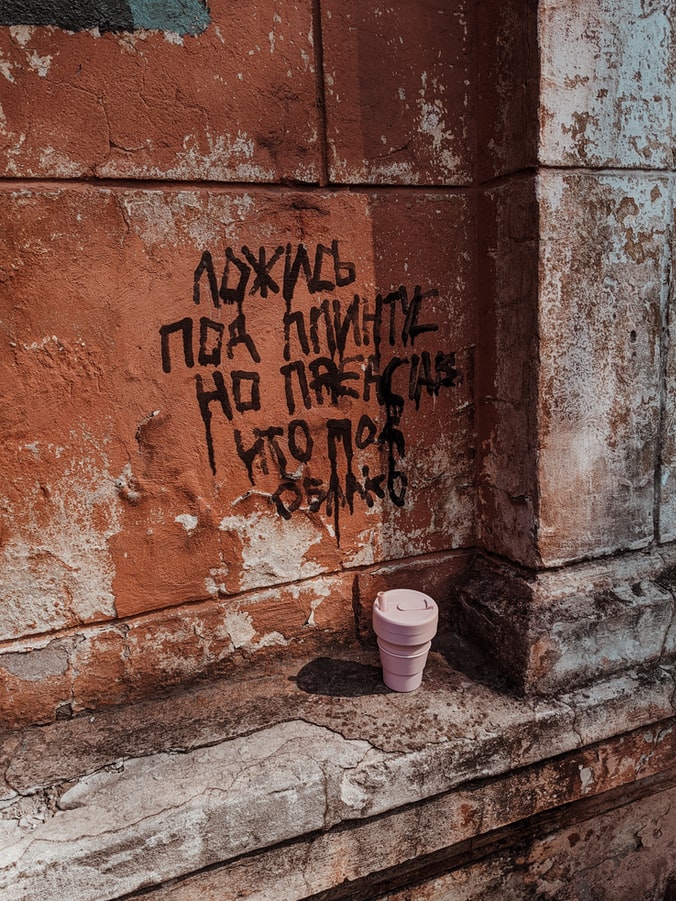 ЛОЖИСЬ
ПОД ПЛИНТУС
НО ПРЕДСТАВЬ
ЧТО ПОД
ОБЛАКО